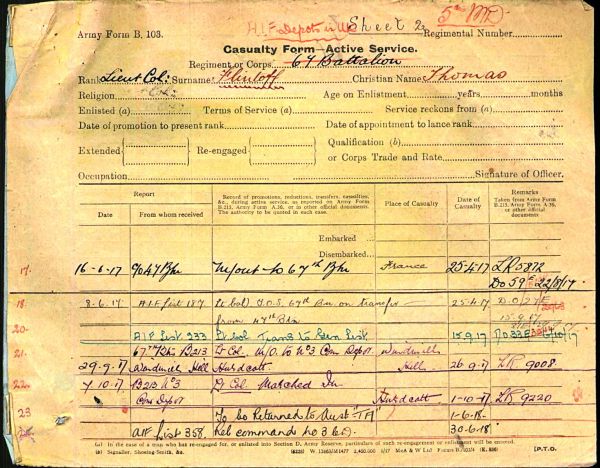 5th MD
A.I.F Depots in UK Sheet 2
Army Form B. 103.
Regimental Number
Casualty Form—Active Service.
Regiment or Corps 67 Battalion
Rank Lieut Col: Surname Flintoff Christian Name Thomas
Religion Age on Enlistment years months
Enlisted (a) Terms of Service (a) Service reckons from (a)
Date of promotion to present rank Date of appointment to lance rank
Extended Re-engaged Qualification (b) or Corps Trade and Rate
Occupation Signature of Officer.
Report
Date From whom received
Record of promotions, reductions, transfers, casualties, &c., during active service, as reported on Army Form B.213, Army Form A.36, or in other official documents. The authority to be quoted in each case.
Place of Casualty
Date of Casualty
Remarks
Taken from Army Form B.213, Army Form A.36, or other official documents
Embarked
Disembarked
17. 16-6-17 90 47 Bn M/out to 67th Bn France 25-4-17 LR 5872
DO 59 22/8/17
18. 8-6-17 A.I.F List 187 Lt Col T.O.S. 67th Bn on transfer 25-4-17 D.O/27E
from 47th Bn
20. AIF List 233 Lt Col Trans to Gen List 15.9.17
67th Bn B213 Lt Col. M/O to No3 Com Depot. Windmill
29-9-17 Windmill Hill Hurdcott Hill 26-9-17 LR 9008
22. 7-10-17 B213 No 3 Lt Col Marched In
Com Depot Hurdcott 1-10-17 LR 9220
23 To be Returned to Aust 1-6-18
AIF List 358. Rel command No 3 C.D. 30-6-18
(a) In the case of a man who has re-engaged for, or enlisted into Section D, Army Reserve, particulars of such re-engagement or enlistment will be entered.
(b) Signaller, Shoeing-Smith, &c. [P.T.O.